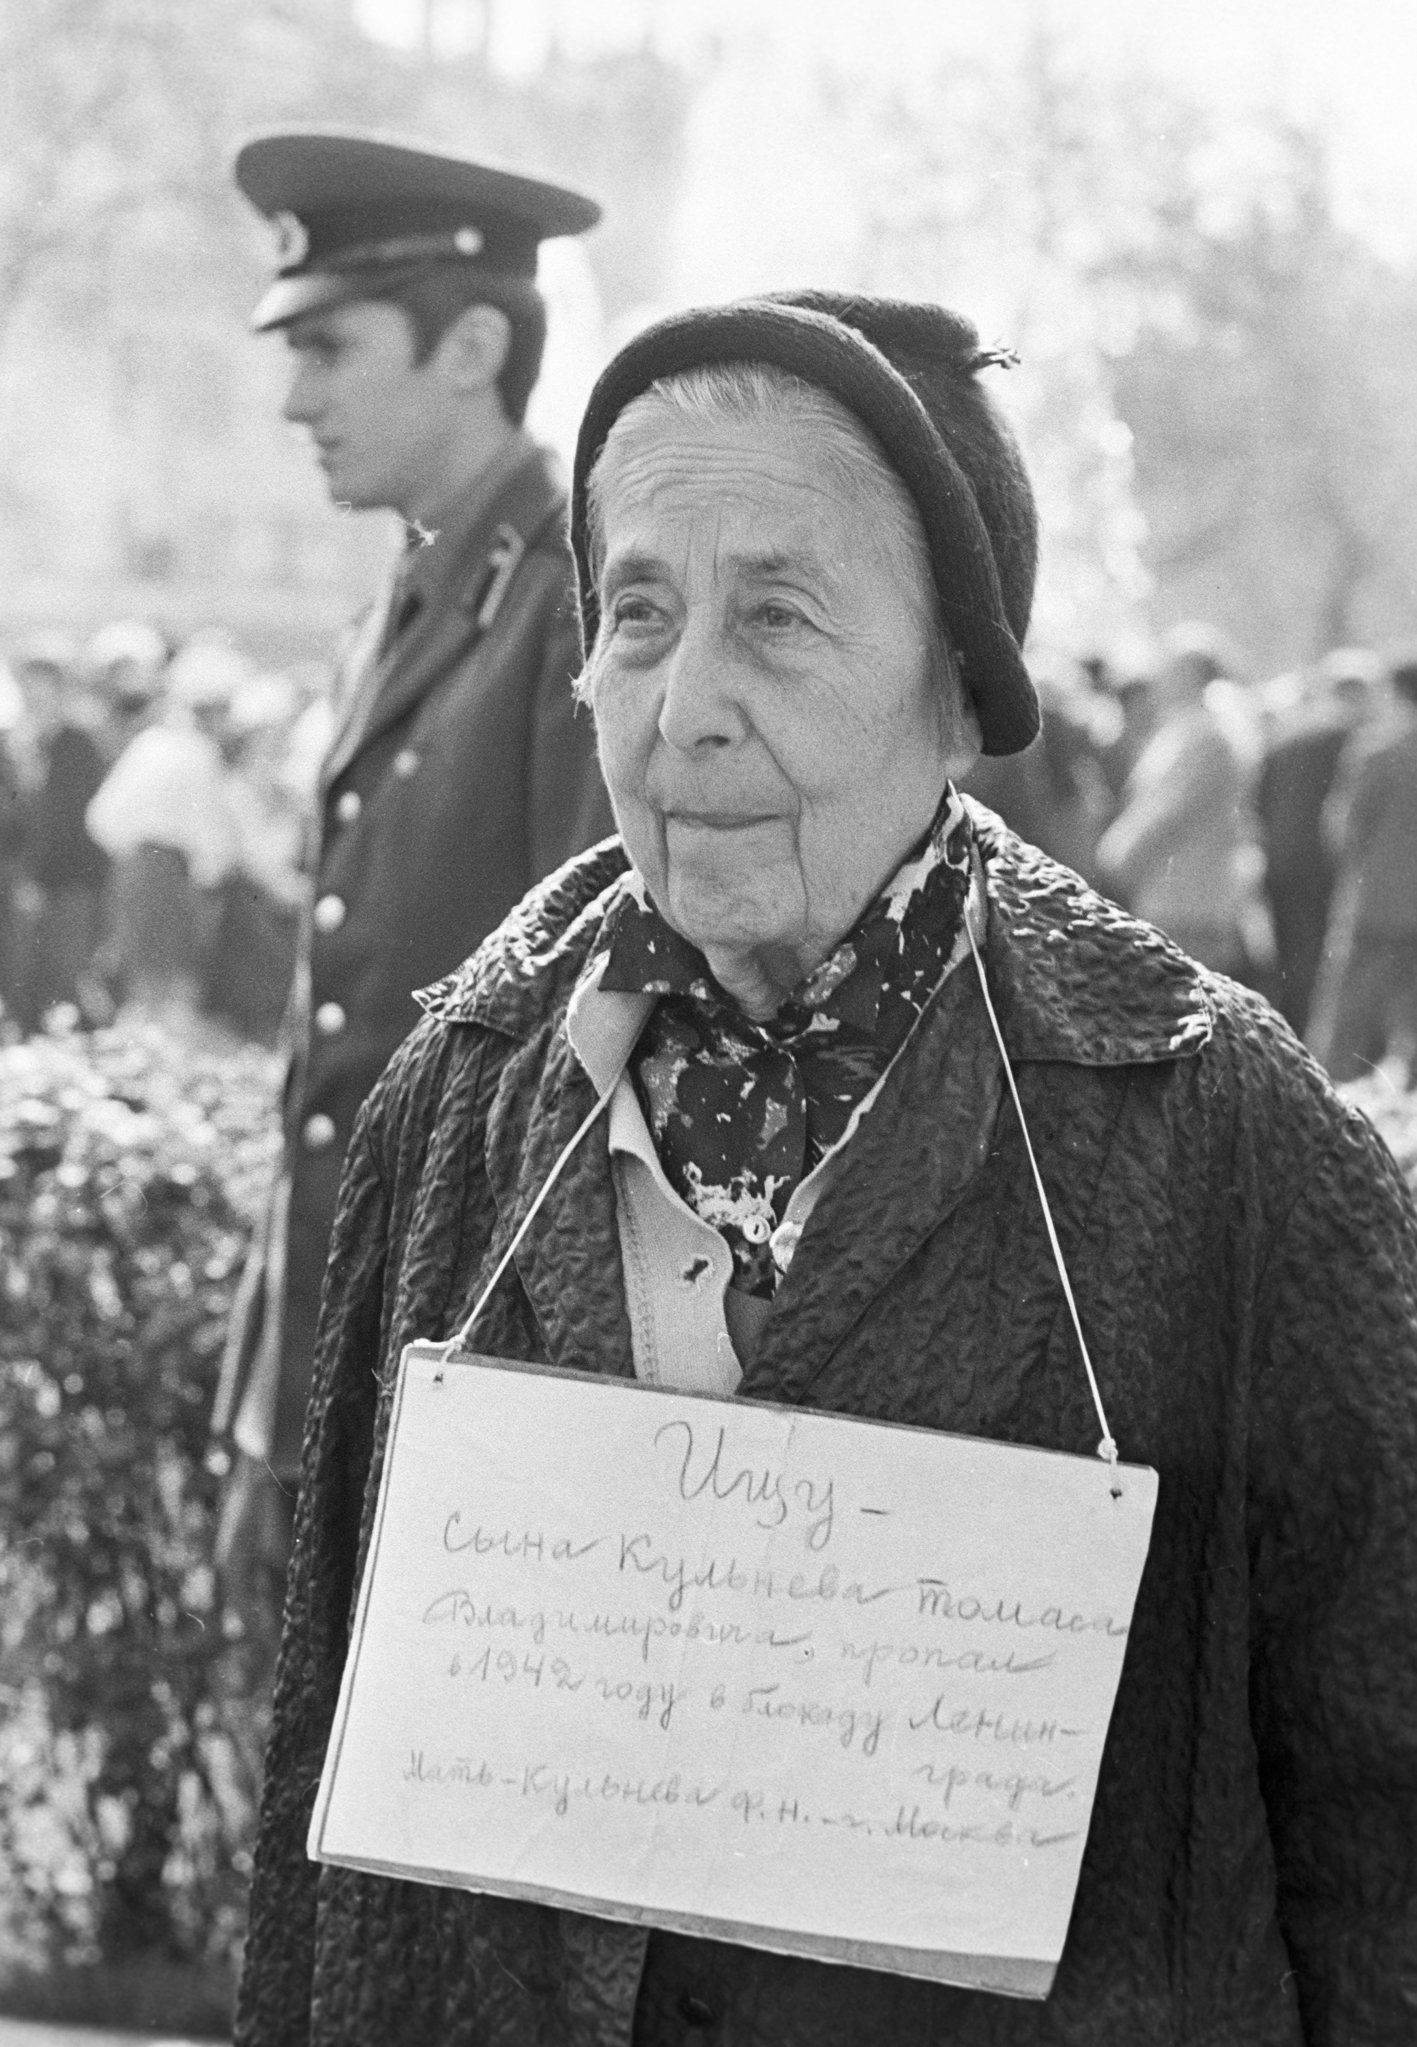 Ищу -
сына Кульнева Томаса
Владимировича, пропал
в 1942 году в блокаду Ленин-
града.
Мать-Кульнева Ф.Н. - г. Москва